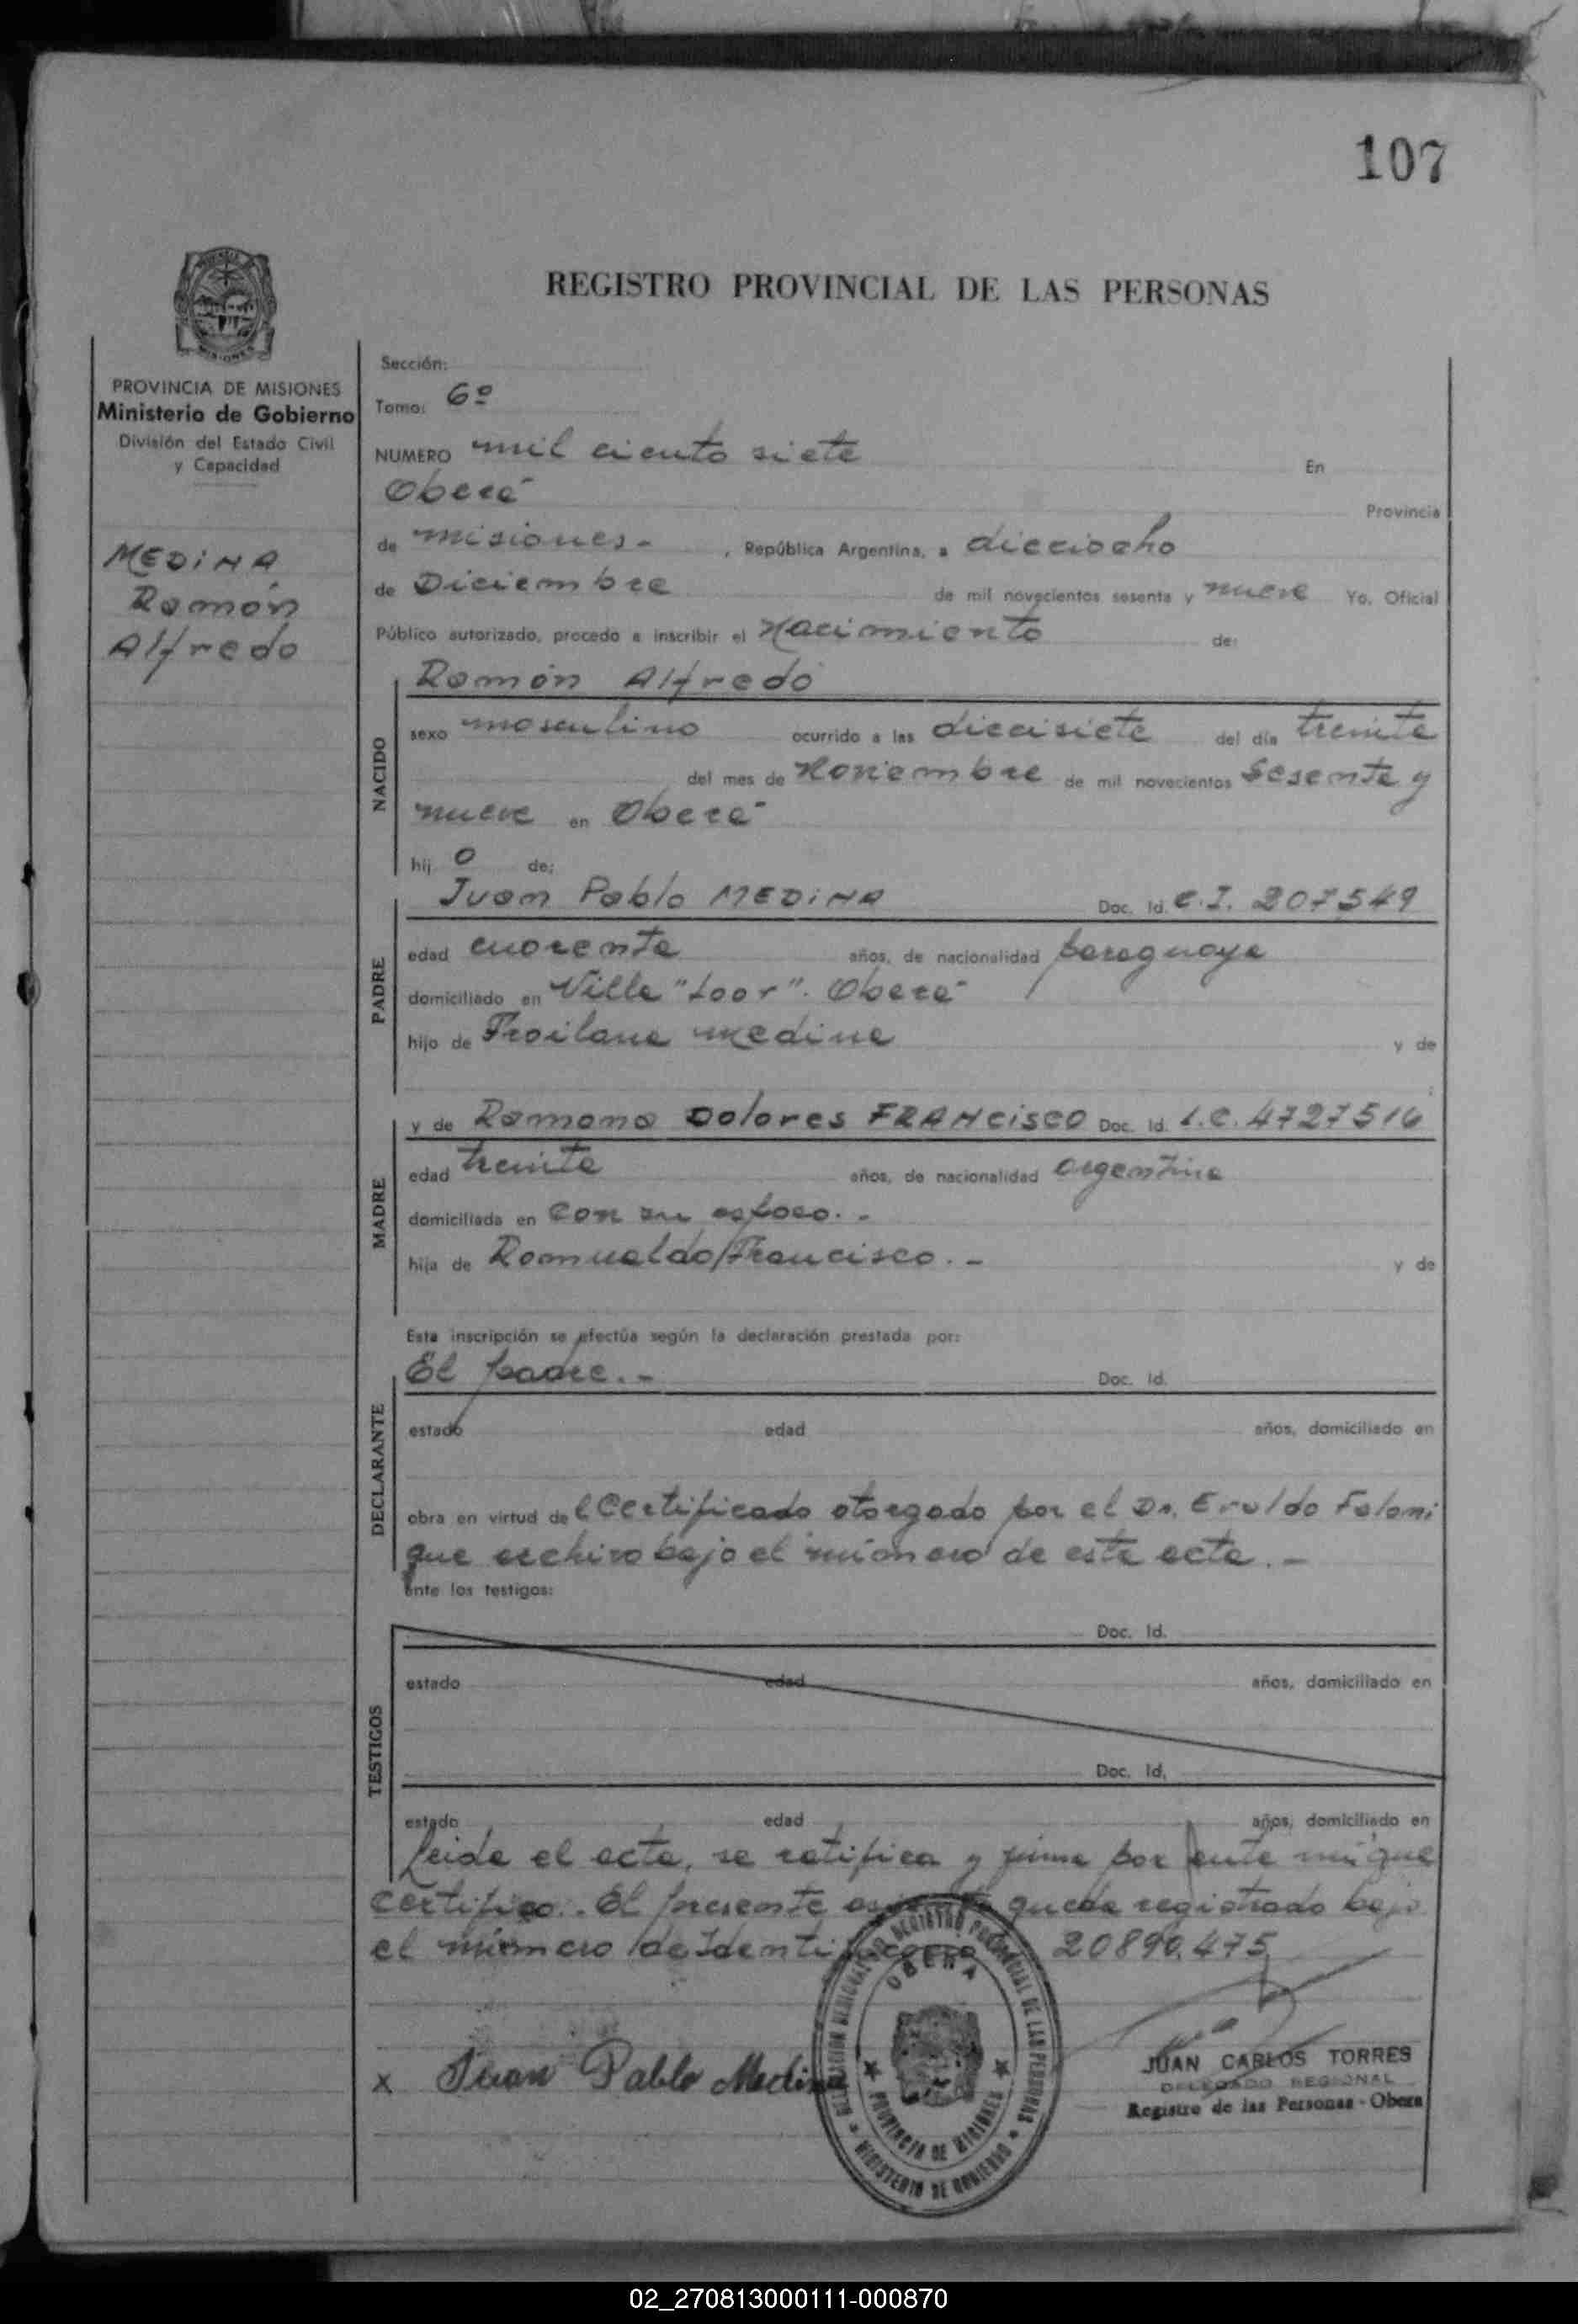 107
REGISTRO PROVINCIAL DE LAS PERSONAS
PROVINCIA DE MISIONES
Ministerio de Gobierno
División del Estado Civil
y Capacidad
MEDINA
Ramón
Alfredo
Sección:
Tomo: 6º
NUMERO mil ciento siete En
Oberá Provincia
de misiones.- , República Argentina, a dieciocho
de Diciembre de mil novecientos sesenta y nueve Yo, Oficial
Público autorizado, procedo a inscribir el Nacimiento de:
NACIDO
Ramón Alfredo
sexo masculino ocurrido a las diecisiete del día treinta
del mes de Noviembre de mil novecientos sesenta y
nueve en Oberá
hij o de:
PADRE
Juan Pablo MEDINA Doc. Id. C.I. 207549
edad cuarenta años, de nacionalidad paraguaya
domiciliado en Villa "Loor". Oberá
hijo de Froilana medina y de
MADRE
y de Ramona Dolores FRANCISCO Doc. Id. L.C. 4727516
edad treinta años, de nacionalidad argentina
domiciliada en con su esposo.-
hija de Romualdo Francisco.- y de
Esta inscripción se efectúa según la declaración prestada por:
DECLARANTE
El padre.- Doc. Id.
estado edad años, domiciliado en
obra en virtud del Certificado otorgado por el Dr. Eraldo Faloni
que archivo bajo el número de esta acta.-
ante los testigos:
TESTIGOS
Doc. Id.
estado edad años, domiciliado en
Doc. Id.
estado edad años, domiciliado en
Leida el acta, se ratifica y firma por ante mi que
certifico.. El presente queda registrado bajo
el número de 20890.475
x Juan Pablo Medina
OBERA
DELEGACION REGIONAL DEL REGISTRO PROVINCIAL DE LAS PERSONAS
PROVINCIA DE MISIONES
MINISTERIO DE GOBIERNO
JUAN CARLOS TORRES
DELEGADO REGIONAL
Registro de las Personas - Obera
02_270813000111-000870